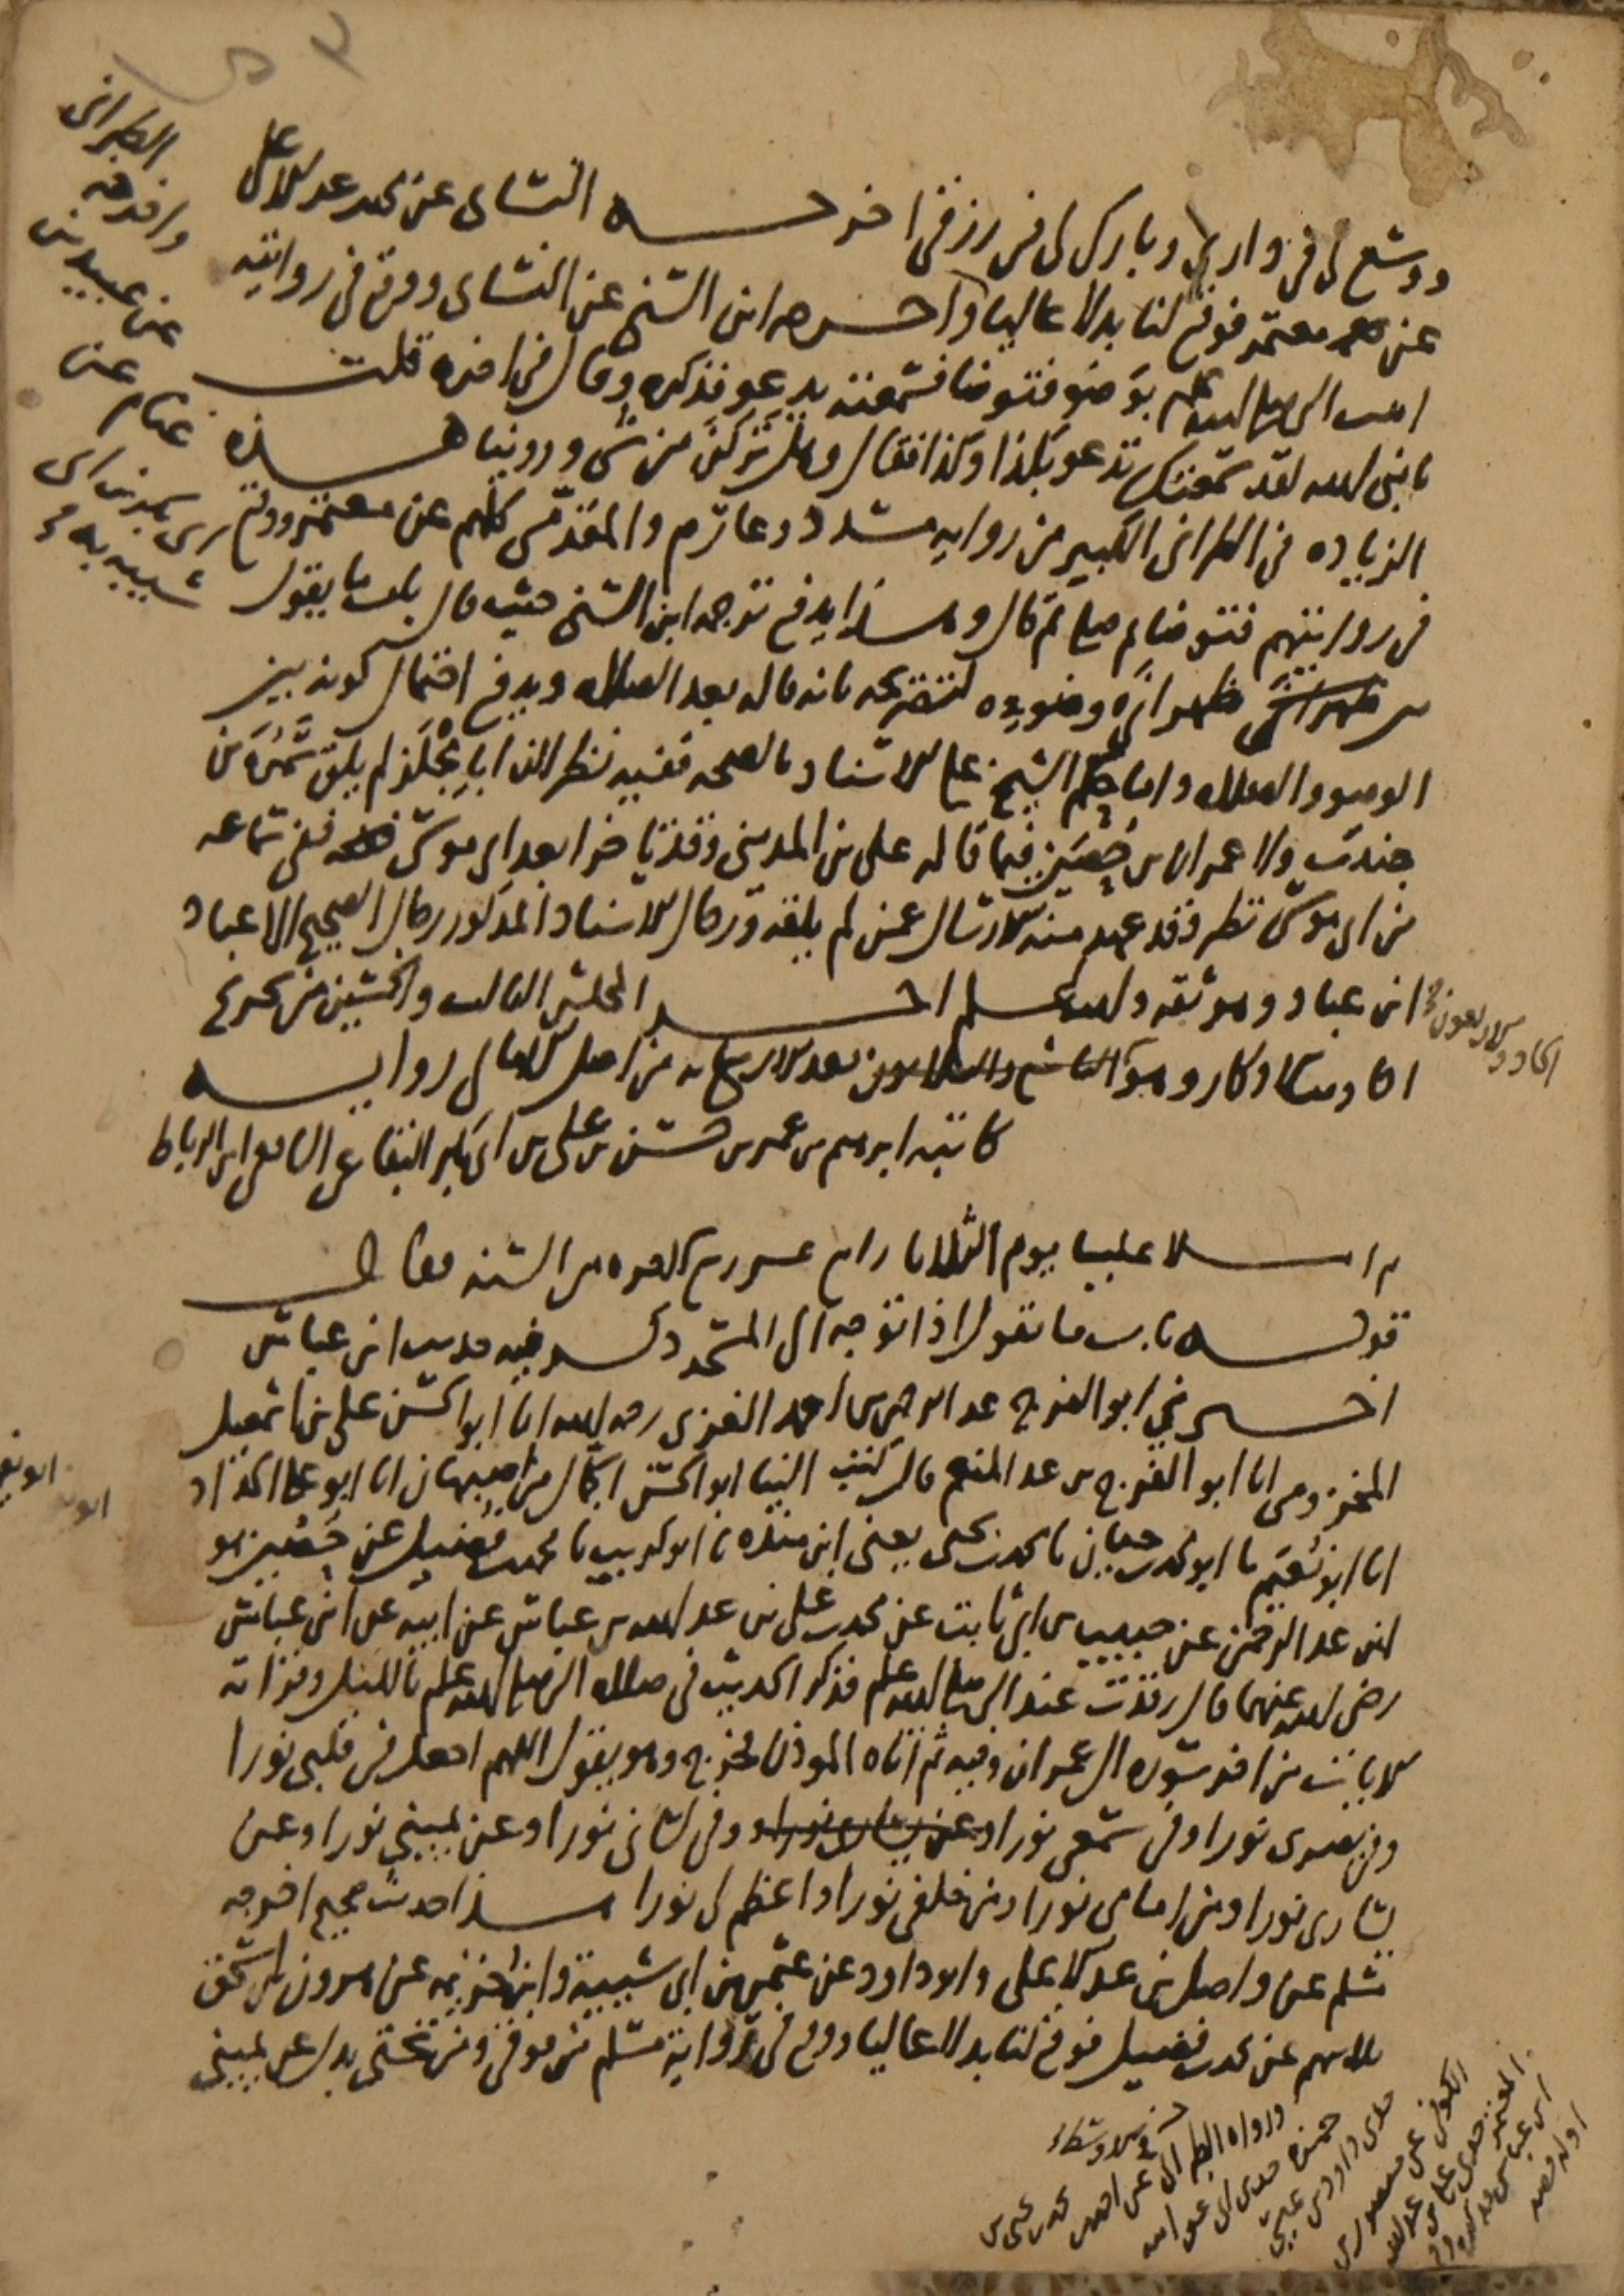 ووسع لي في داري وبارك لي في رزقي اخرجه النسائي عن محمد بن عبد الاعلى
عن معتمر فوقع لنا بدلا عاليا واخرجه ابن السني عن النسائي ووقع في روايته
اتيت النبي صلى الله عليه وسلم بوضوء فتوضا فسمعته يدعو فذكره وقال في اخره قلت
يا نبي الله لقد سمعتك تدعو بكذا وكذا فقال وهل تركن من شي وروينا هذه
الزيادة في الطبراني الكبير من رواية مسدد وعارم والمقدمي كلهم عن معتمر ووقع
في روايتهم فتوضا ثم صلى ثم قال وهذا يدفع ترجمة ابن السني حيث قال باب ما يقول
بين ظهراني وضوءه لتصريحه بانه قاله بعد الصلاة ويدفع احتمال كونه بين
الوضوء والصلاة واما حكم الشيخ على الاسناد بالصحة ففيه نظر لان ابا مجلز لم يلق سمرة بن
جندب ولا عمران بن حصين فيما قاله علي بن المديني وقد تاخرا بعد ابي موسى ففي سماعه
من ابي موسى نظر وقد عهد منه الارسال عمن لم يلقه ورجال الاسناد المذكور رجال الصحيح الا عباد
ابن عباد وهو ثقة والله اعلم اخر المجلس الثالث والخمسين من تخريج
احاديث الاذكار وهو بعد الاربع مائة من اصل الامالي رواية
كاتبه ابرهيم بن عمر بن حسن بن علي بن ابي بكر البقاعي الشافعي ابن الرباط
ثم املا علينا يوم الثلاثا رابع عشر ذي القعدة من السنة فقال
قوله باب ما يقول اذا توجه الى المسجد ذكر فيه حديث ابن عباس
اخبرني ابو الفرج عبد الرحمن بن احمد الغزي رحمه الله انا ابو الحسن علي بن اسمعيل
المخزومي انا ابو الفرج بن عبد المنعم قال كتب الينا ابو الحسن الجمال من اصبهان انا ابو علي الحداد
انا ابو نعيم نا ابو محمد بن حيان نا محمد بن يحيى يعني ابن منده نا ابو كريب نا محمد بن فضيل عن حصين هو
ابن عبد الرحمن عن حبيب بن ابي ثابت عن محمد بن علي بن عبد الله بن عباس عن ابيه عن ابن عباس
رضي الله عنهما قال رقدت عند النبي صلى الله عليه وسلم فذكر الحديث في صلاة النبي صلى الله عليه وسلم بالليل وقراته
الايات من اخر سورة ال عمران وفيه ثم اتاه المؤذن فخرج وهو يقول اللهم اجعل في قلبي نورا
وفي بصري نورا وفي سمعي نورا وعن يساري نورا وفي لساني نورا وعن يميني نورا وعن
يساري نورا ومن امامي نورا ومن خلفي نورا واعظم لي نورا هذا حديث صحيح اخرجه
مسلم عن واصل بن عبد الاعلى وابو داود عن عثمن بن ابي شيبة وابن خزيمة عن هرون بن اسحق
كلاهم عن محمد بن فضيل فوقع لنا بدلا عاليا ووقع في رواية مسلم من فوقي ومن تحتي بدل عن يميني
الطبراني
واخرجه
عن عبيد بن
غنام عن
ابي بكر بن ابي
شيبة به
الحادي والاربعون
ورواه الطبراني في الاوسط
عن احمد بن محمد بن يحيى بن
حمزة حدثني ابي عن ابيه
حدثني داود بن عيسى
الكوفي عن منصور بن
المعتمر حدثني علي بن عبد الله
ابن عباس